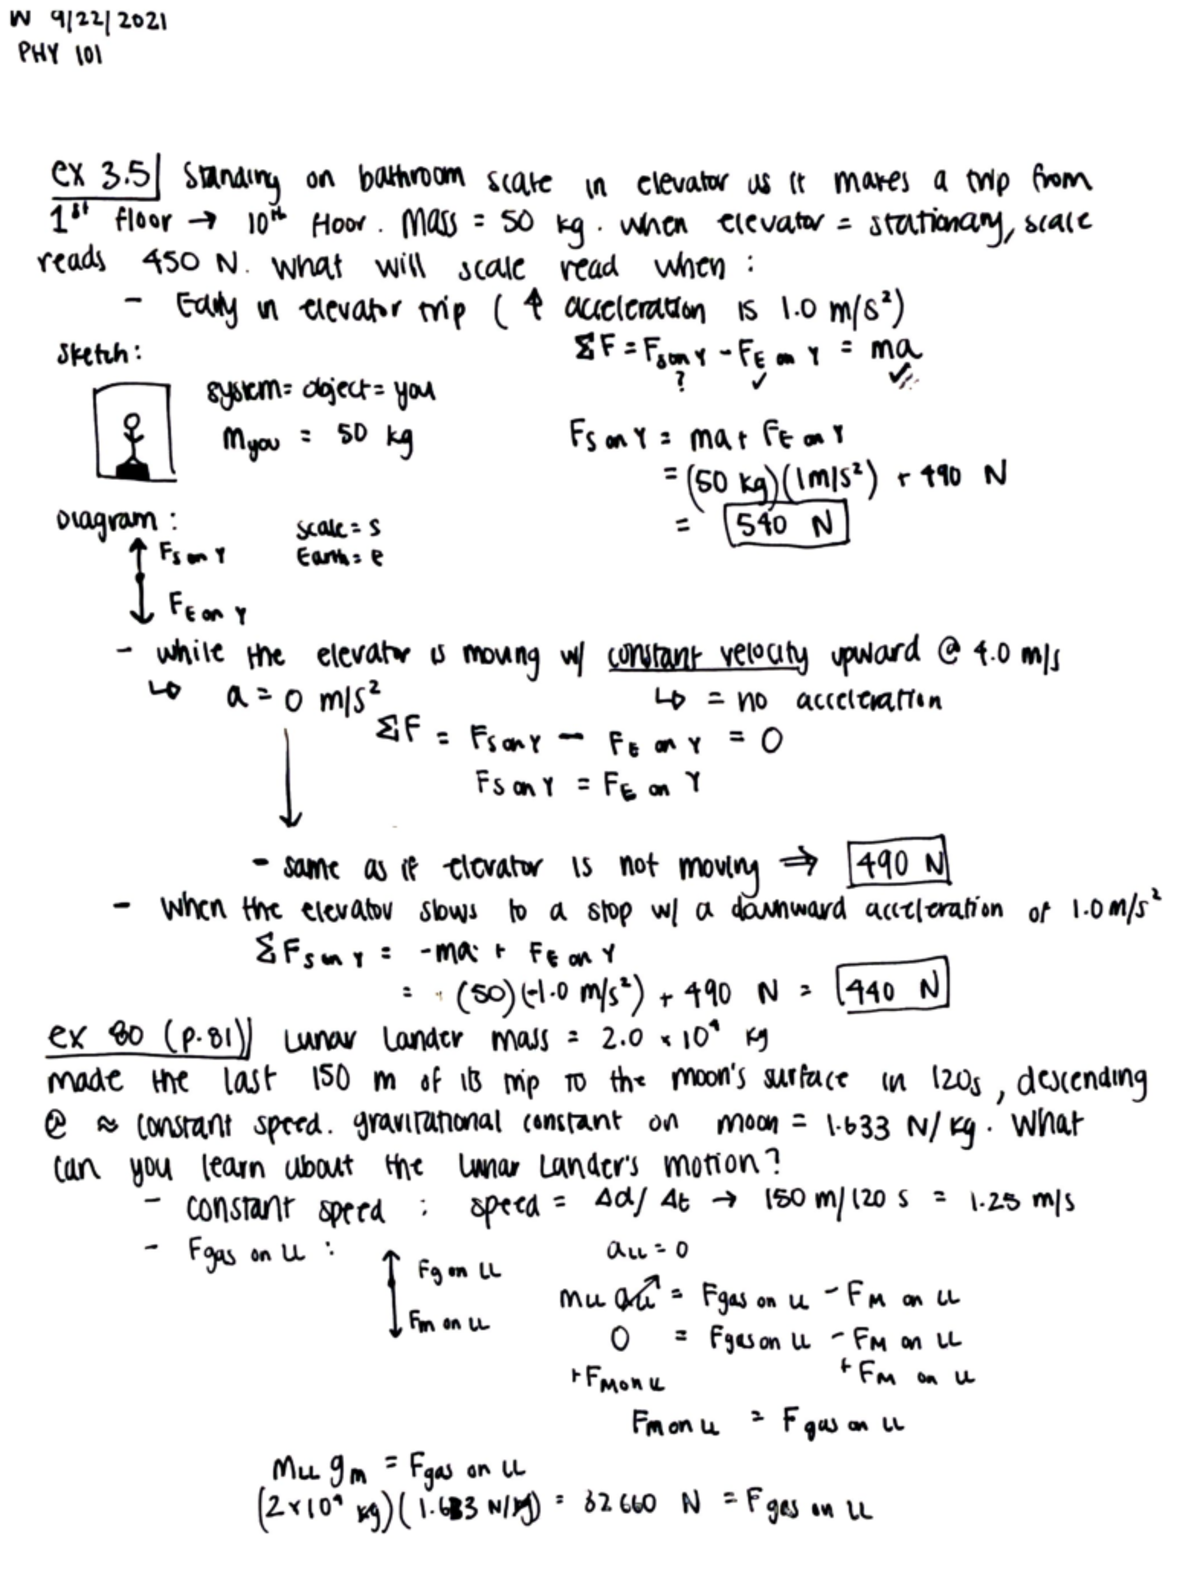 W 9/22/2021
PHY 101
ex 3.5 Standing on bathroom scale in elevator as it makes a trip from
1st floor → 10th floor. Mass = 50 kg. when elevator = stationary, scale
reads 450 N. What will scale read when:
- Early in elevator trip (↑ acceleration is 1.0 m/s²)
Sketch:
system = object = you
m you = 50 kg
ΣF = F S on Y - F E on Y = ma
? ✓ ✓
F S on Y = ma + F E on Y
= (50 kg)(1m/s²) + 490 N
= 540 N
Diagram:
F S on Y
F E on Y
scale = s
Earth = e
- while the elevator is moving w/ constant velocity upward @ 4.0 m/s
↳ a = 0 m/s²
↳ = no acceleration
ΣF = F S on Y - F E on Y = 0
F S on Y = F E on Y
- same as if elevator is not moving ⇒ 490 N
- When the elevator slows to a stop w/ a downward acceleration of 1.0 m/s²
ΣF S on Y = -ma + F E on Y
= (50)(-1.0 m/s²) + 490 N = 440 N
ex 80 (p.81) Lunar Lander mass = 2.0 × 10⁴ kg
made the last 150 m of its trip to the moon's surface in 120s, descending
@ ≈ constant speed. gravitational constant on moon = 1.633 N/kg. What
can you learn about the Lunar Lander's motion?
- constant speed : speed = Δd/Δt → 150 m/120 s = 1.25 m/s
- F gas on LL :
F g on LL
F m on LL
a LL = 0
m LL a LL = F gas on LL - F M on LL
0 = F gas on LL - F M on LL
+F M on LL +F M on LL
F m on LL = F gas on LL
M LL g m = F gas on LL
(2×10⁴ kg)(1.633 N/kg) = 32660 N = F gas on LL